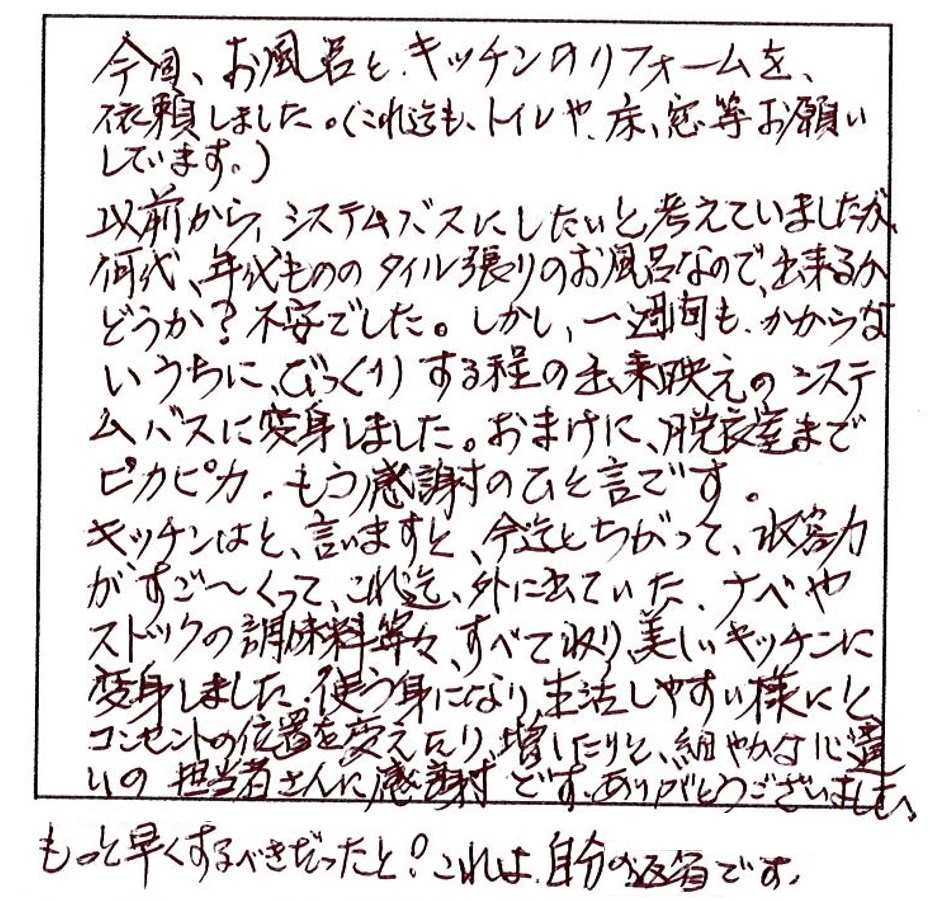 今回、お風呂と、キッチンのリフォームを、
依頼しました。(これ迄も、トイレや、床、窓等お願い
しています。)
以前から、システムバスにしたいと考えていましたが、
何代、年代もののタイル張りのお風呂なので、出来るか
どうか?不安でした。しかし、一週間も、かからな
いうちに、びっくりする程の出来映えのシステ
ムバスに変身しました。おまけに、脱衣室まで
ピカピカ。もう感謝のひと言です。
キッチンはと、言いますと、今迄とちがって、収容力
がすご〜くって、これ迄、外に出ていた、ナベや
ストックの調味料等々、すべて収り、美しいキッチンに
変身しました。使う身になり、生活しやすい様にと、
コンセントの位置を変えたり、増したりと、細やかな心遣
いの担当者さんに感謝です。ありがとうございました。
もっと早くするべきだったと?これは、自分の反省です。